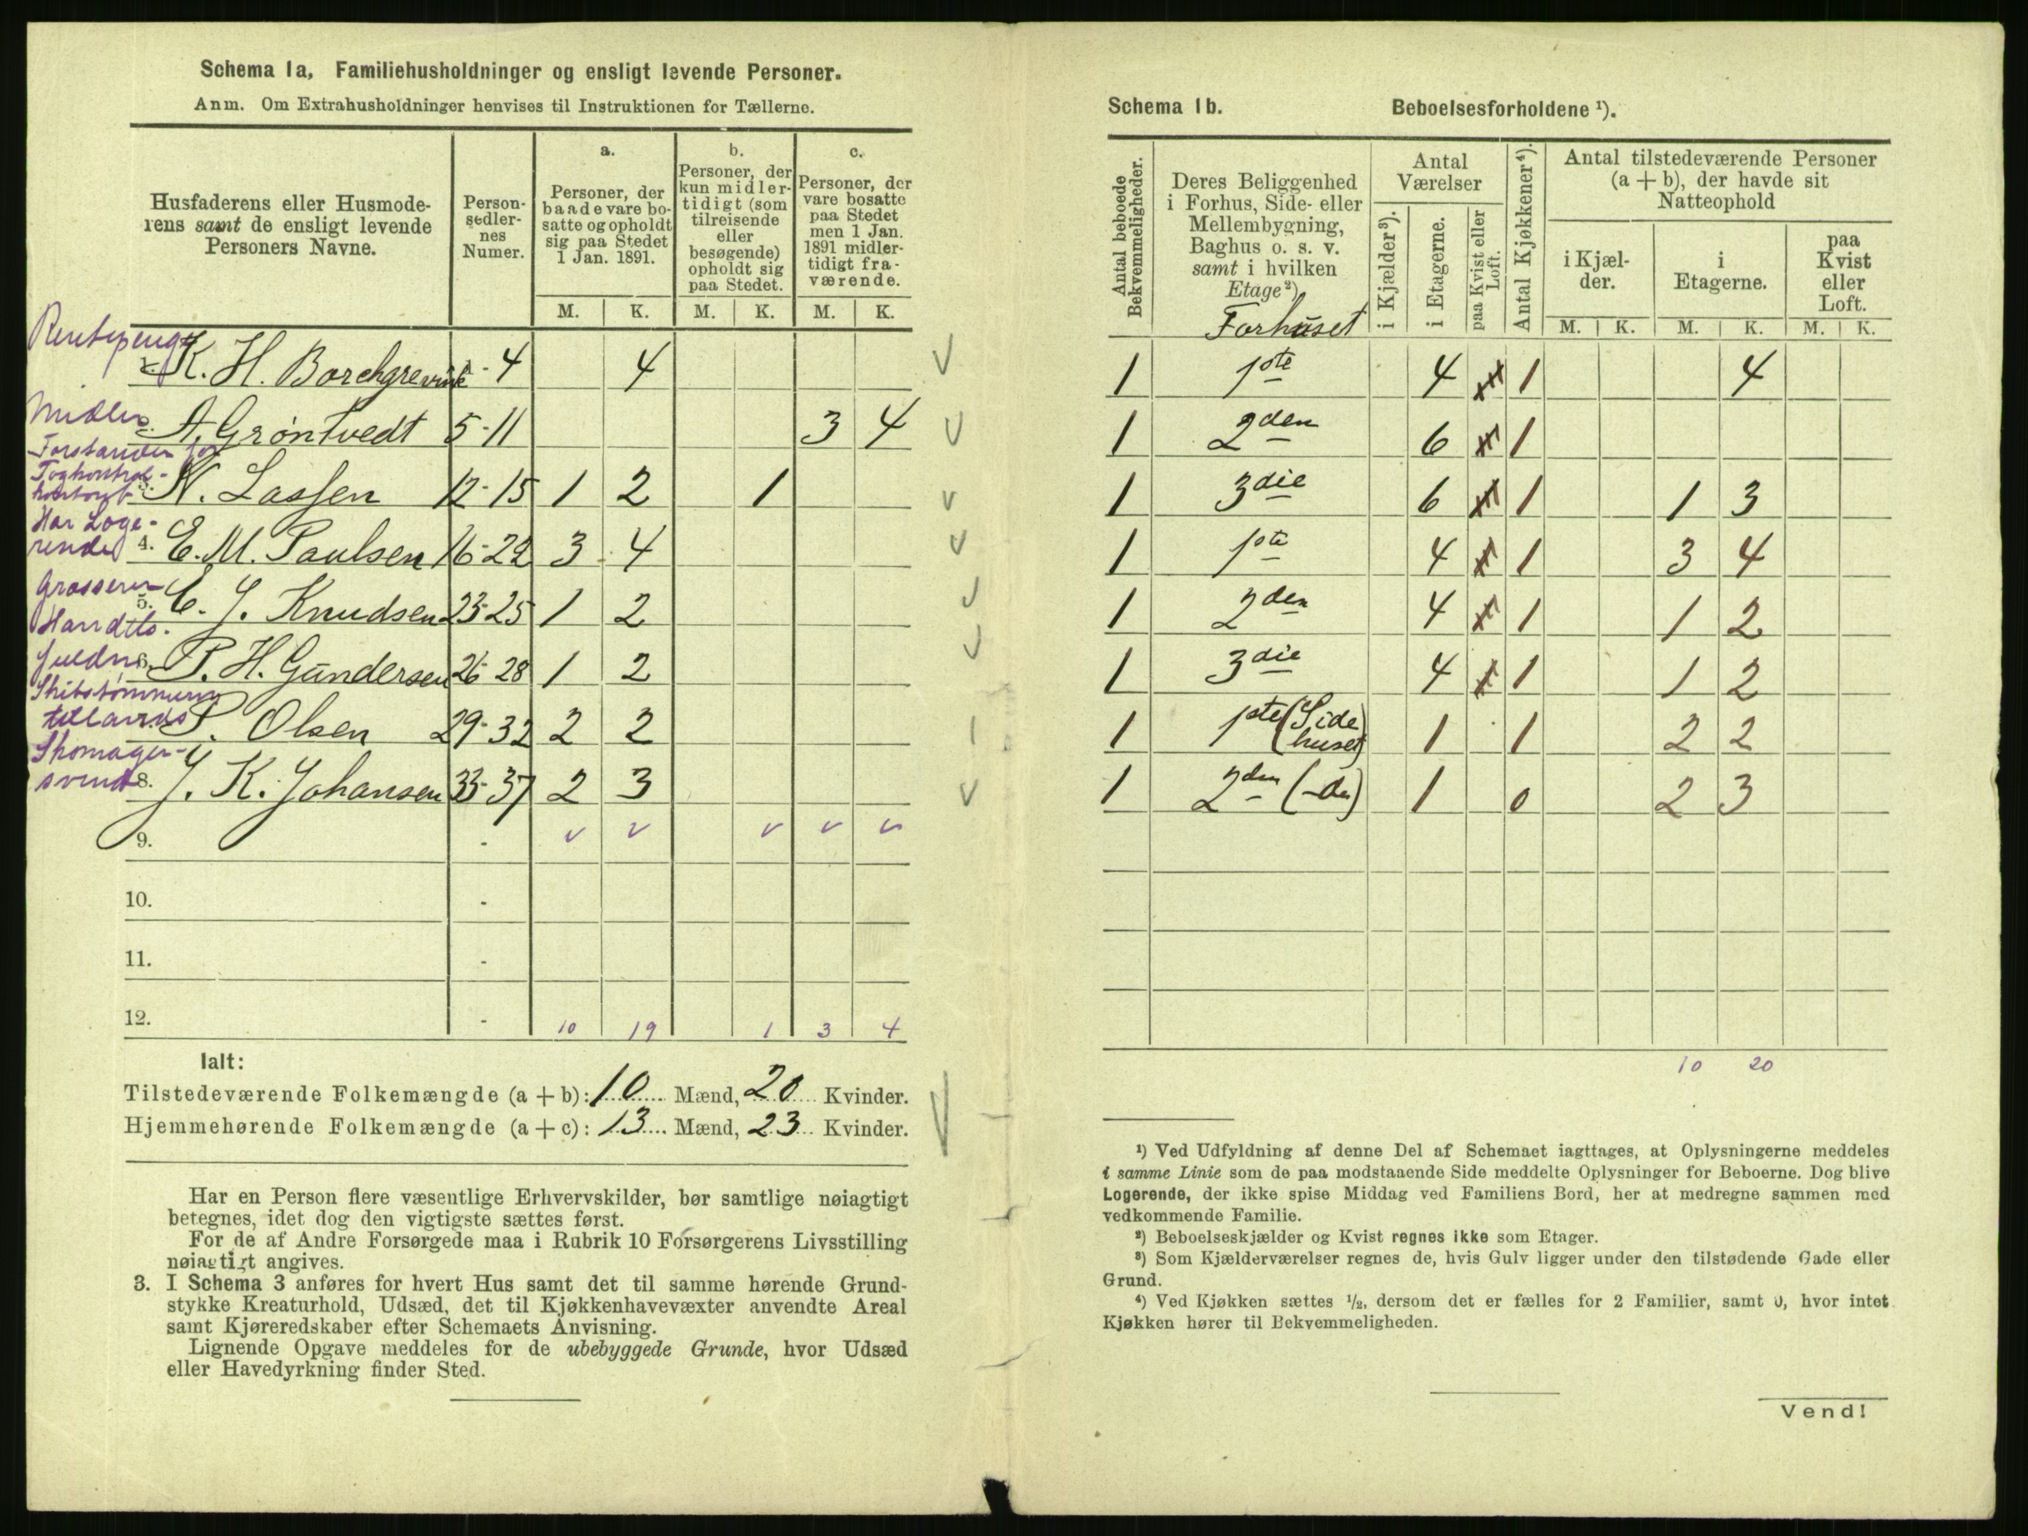 Schema 1a, Familiehusholdninger og ensligt levende Personer.
Anm. Om Extrahusholdninger henvises til Instruktionen for Tællerne.
Husfaderens eller Husmoderens samt de ensligt levende Personers Navne.
Person-sedler-nes Numer.
a. Personer, der baade vare bosatte og opholdt sig paa Stedet 1 Jan. 1891.
b. Personer, der kun midlertidigt (som tilreisende eller besøgende) opholdt sig paa Stedet.
c. Personer, der vare bosatte paa Stedet men 1 Jan. 1891 midlertidigt fraværende.
M. K. M. K. M. K.
Rentepenge
1. K. H. Borchgrevink 1 - 4 4
Midler
2. A. Grøntvedt 5-11 3 4
Forstander for
Togkontrol-
kontoret
3. N. Lassen 12-15 1 2 1
Har Loge-
rende
4. E. M. Paulsen 16-22 3 4
Grosserer
5. C. J. Knudsen 23-25 1 2
Handels-
fuldm.
6. P. H. Gundersen 26-28 1 2
Skibstømmerm.
tillands
P. Olsen 29-32 2 2
Skomager-
svend
8. J. K. Johansen 33-37 2 3
9. -
10. -
11. -
12. - 10 19 1 3 4
Ialt:
Tilstedeværende Folkemængde (a + b): 10 Mænd, 20 Kvinder.
Hjemmehørende Folkemængde (a + c): 13 Mænd, 23 Kvinder.
Har en Person flere væsentlige Erhvervskilder, bør samtlige nøiagtigt
betegnes, idet dog den vigtigste sættes først.
For de af Andre Forsørgede maa i Rubrik 10 Forsørgerens Livsstilling
nøiagtigt angives.
3. I Schema 3 anføres for hvert Hus samt det til samme hørende Grund-
stykke Kreaturhold, Udsæd, det til Kjøkkenhavevæxter anvendte Areal
samt Kjøreredskaber efter Schemaets Anvisning.
Lignende Opgave meddeles for de ubebyggede Grunde, hvor Udsæd
eller Havedyrkning finder Sted.
Schema 1b. Beboelsesforholdene ¹).
Antal beboede Bekvemmeligheder.
Deres Beliggenhed i Forhus, Side- eller Mellembygning, Baghus o. s. v. samt i hvilken Etage ²)
Antal Værelser
i Kjælder ³).
i Etagerne.
paa Kvist eller Loft.
Antal Kjøkkener ⁴).
Antal tilstedeværende Personer (a + b), der havde sit Natteophold
i Kjæl-der.
i Etagerne.
paa Kvist eller Loft.
M. K. M. K. M. K.
Forhuset
1 1ste 4 1 4
1 2den 6 1
1 3die 6 1 1 3
1 1ste 4 1 3 4
1 2den 4 1 1 2
1 3die 4 1 1 2
1 1ste (Side huset) 1 1 2 2
1 2den (-do) 1 0 2 3
10 20
¹) Ved Udfyldning af denne Del af Schemaet iagttages, at Oplysningerne meddeles
i samme Linie som de paa modstaaende Side meddelte Oplysninger for Beboerne. Dog blive
Logerende, der ikke spise Middag ved Familiens Bord, her at medregne sammen med
vedkommende Familie.
²) Beboelseskjælder og Kvist regnes ikke som Etager.
³) Som Kjælderværelser regnes de, hvis Gulv ligger under den tilstødende Gade eller
Grund.
⁴) Ved Kjøkken sættes ½, dersom det er fælles for 2 Familier, samt 0, hvor intet
Kjøkken hører til Bekvemmeligheden.
Vend!